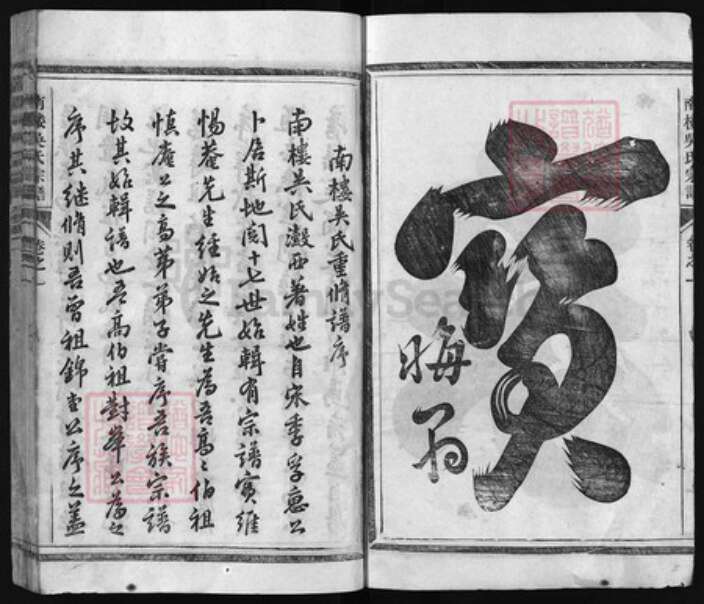 寶
晦翁
南樓吳氏宗譜
卷之一
南樓吳氏重脩譜序
南樓吳氏瀫西著姓也自宋季孚惠公
卜居斯地閱十七世始輯有宗譜實維
惕菴先生經始之先生為吾高高伯祖
慎菴公之高弟弟子嘗序吾族宗譜
故其始輯譜也吾高伯祖對峯公為之
序其繼脩則吾曾祖錦堂公序之蓋
南樓吳氏宗譜
卷之一
FamilySearch